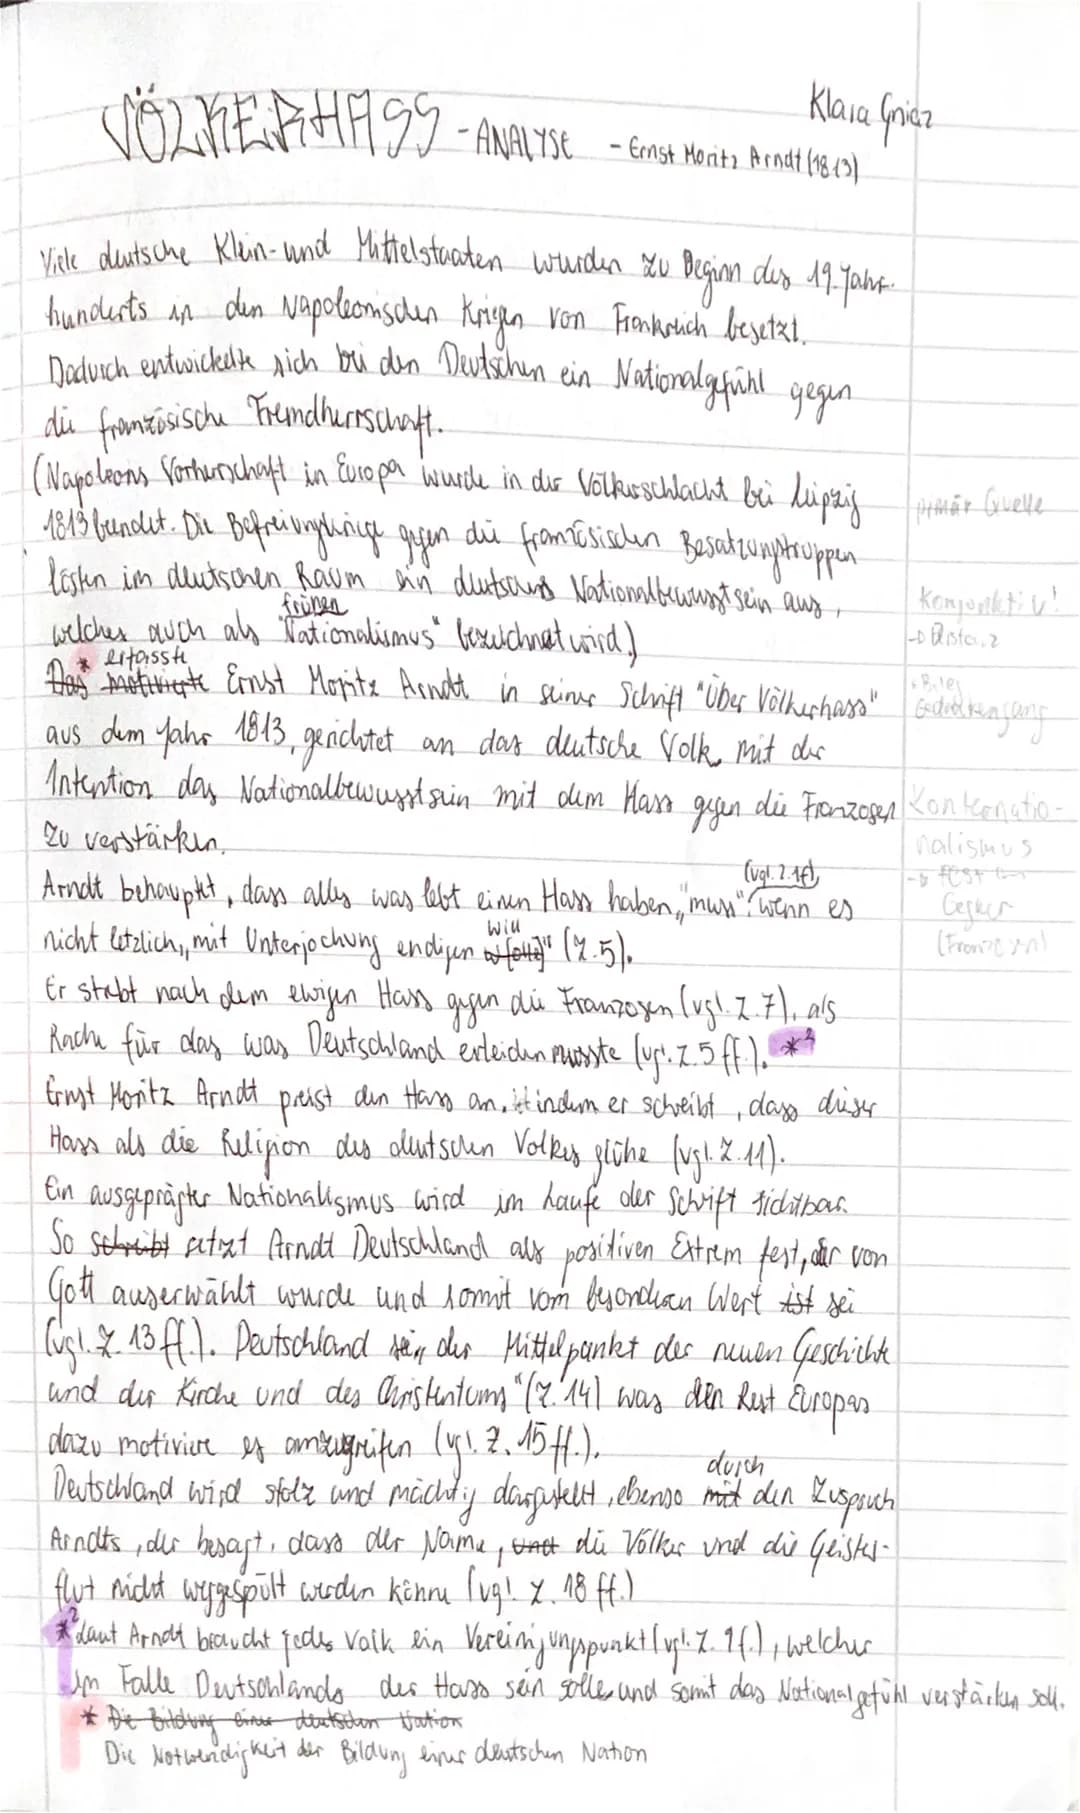 VÖLKERHASS - ANALYSE - Ernst Moritz Arndt (1813)
Klara
Viele deutsche Klein- und Mittelstaaten wurden zu Beginn des 19. Jahr-
hunderts in den Napoleonischen Kriegen von Frankreich besetzt.
Dadurch entwickelte sich bei den Deutschen ein Nationalgefühl gegen
die französische Fremdherrschaft.
(Napoleons Vorherrschaft in Europa wurde in der Völkerschlacht bei Leipzig
1813 beendet. Die Befreiungskriege gegen die französischen Besatzungstruppen
lösten im deutschen Raum ein deutsches Nationalbewusstsein aus,
frühen
welches auch als "Nationalismus" bezeichnet wird.)
* erfasste
Das motivierte Ernst Moritz Arndt in seiner Schrift "Über Völkerhass"
aus dem Jahr 1813, gerichtet an das deutsche Volk, mit der
Intention das Nationalbewusstsein mit dem Hass gegen die Franzosen
zu verstärken.
(vgl. Z. 1f),
Arndt behauptet, dass alles was lebt einen Hass haben "muss", wenn es
will
nicht letzlich "mit Unterjochung endigen" (Z. 5).
Er strebt nach dem ewigen Hass gegen die Franzosen (vgl. Z. 7), als
Rache für das was Deutschland erleiden musste (vgl. Z. 5 ff.). *²
Ernst Moritz Arndt preist den Hass an, indem er schreibt, dass dieser
Hass als die Religion des deutschen Volkes glühe (vgl. Z. 11).
Ein ausgeprägter Nationalismus wird im Laufe der Schrift sichtbar.
So schreibt setzt Arndt Deutschland als positiven Extrem fest, der von
Gott auserwählt wurde und somit vom besonderen Wert ist sei
(vgl. Z. 13 ff.). Deutschland sei "der Mittelpunkt der neuen Geschichte
und der Kirche und des Christentums" (Z. 14) was den Rest Europas
dazu motiviere es anzugreifen (vgl. Z. 15 ff.).
durch
Deutschland wird stolz und mächtig dargestellt, ebenso mit den Zuspruch
Arndts, der besagt, dass der Name, und die Völker und die Geister-
flut nicht weggespült werden könne (vgl. Z. 18 ff.)
*² Laut Arndt braucht jedes Volk ein Vereinigungspunkt (vgl. Z. 9f.), welcher
im Falle Deutschlands der Hass sein solle und somit das Nationalgefühl verstärken soll.
* Die Bildung einer deutschen Nation
Die Notwendigkeit der Bildung einer deutschen Nation
primär Quelle
Konjunktiv!
Gedankengang
nalismus
(Franzosen)